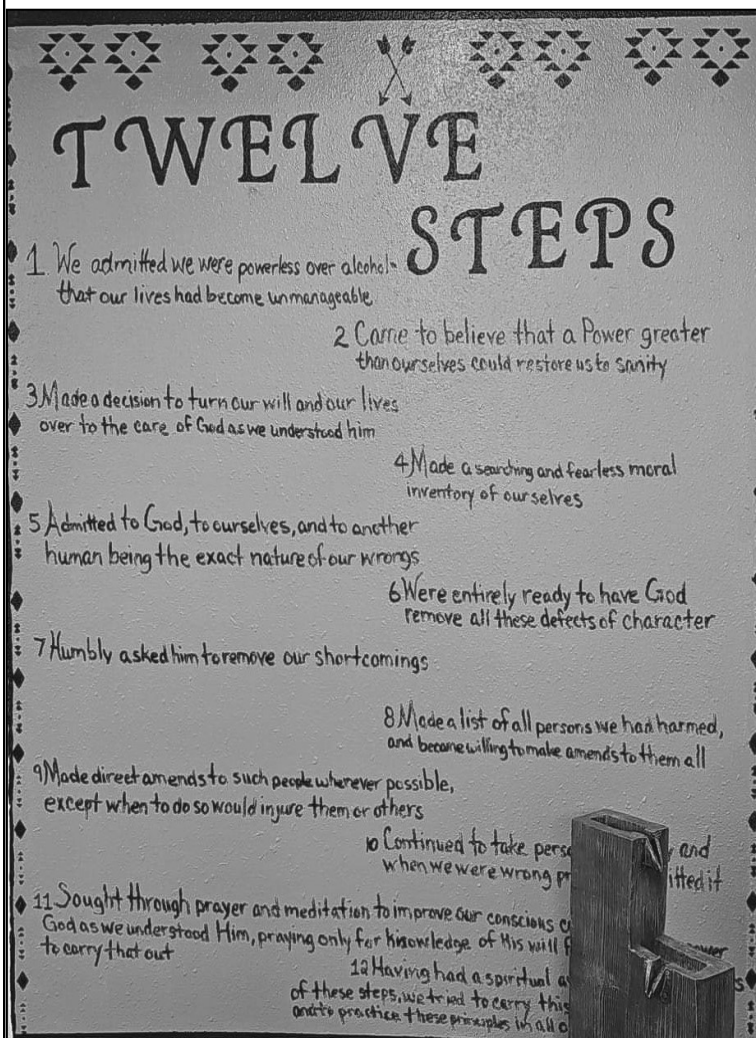 TWELVE
STEPS
1 We admitted we were powerless over alcohol-
that our lives had become unmanageable
2 Came to believe that a Power greater
than ourselves could restore us to sanity
3 Made a decision to turn our will and our lives
over to the care of God as we understood him
4 Made a searching and fearless moral
inventory of ourselves
5 Admitted to God, to ourselves, and to another
human being the exact nature of our wrongs
6 Were entirely ready to have God
remove all these defects of character
7 Humbly asked him to remove our shortcomings
8 Made a list of all persons we had harmed,
and became willing to make amends to them all
9 Made direct amends to such people wherever possible,
except when to do so would injure them or others
10 Continued to take and
when we were wrong it
11 Sought through prayer and meditation to improve our conscious
God as we understood Him, praying only for knowledge of His will
to carry that out
12 Having had a spiritual
of these steps, we tried to carry this
and to practice these principles in all